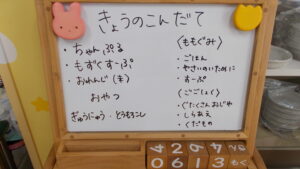 きょうのこんだて
・ちゃんぷる
・もずくすーぷ
・おれんじ(も)
おやつ
ぎゅうにゅう・とうもろこし
〈ももぐみ〉
・ごはん
・やさいのいために
・すーぷ
〈ごごしょく〉
・ぐだくさんおじや
・しらあえ
・くだもの